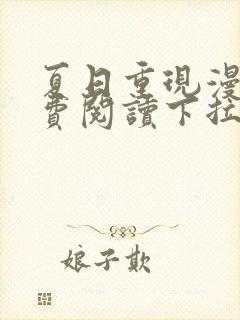 夏日重現漫
費閱讀下拉
娘子欺